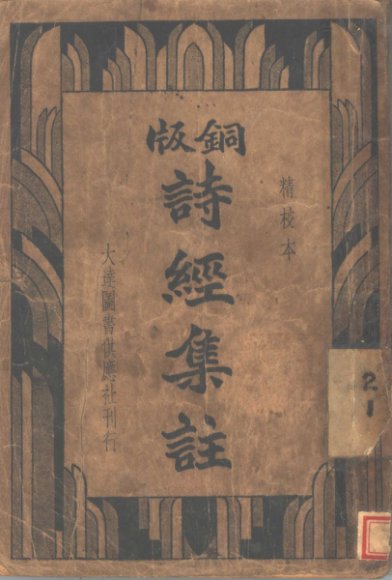 銅版
詩經集註
精校本
大達圖書供應社刊行
2
1